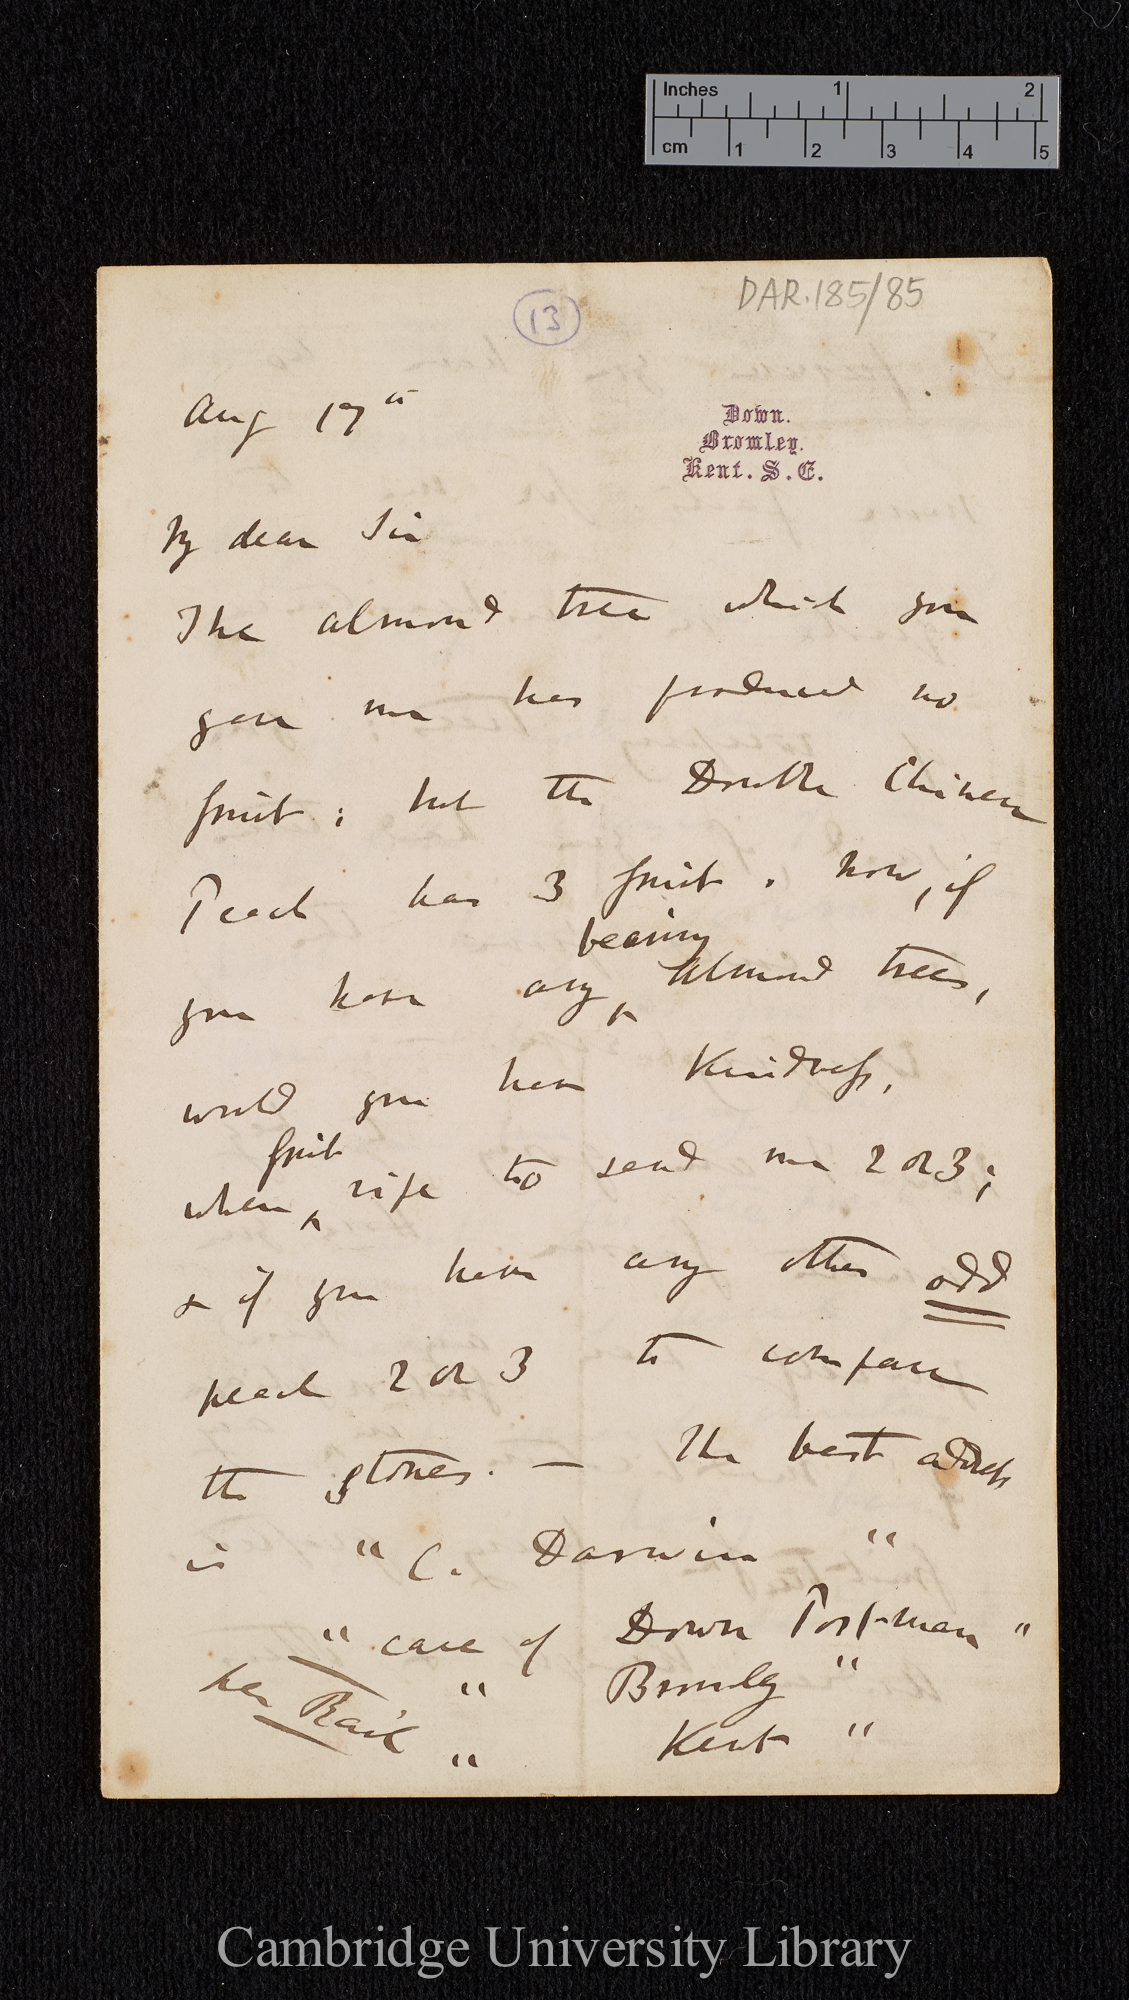 Inches 1 2
cm 1 2 3 4 5
DAR.185/85
13
Aug 17th
Down.
Bromley.
Kent. S.E.
My dear Sir
The almond tree which you
gave me has produced no
fruit; but the Double Chinese
Peach has 3 fruit. Now, if
bearing
you have any ^ almond trees,
would you have kindness,
fruit
when ^ ripe to send me 2 or 3;
& if you have any other odd
peach 2 or 3 to compare
the stones. — The best address
is "C. Darwin "
" care of Down Postman "
per Rail " Bromley "
" Kent "
Cambridge University Library